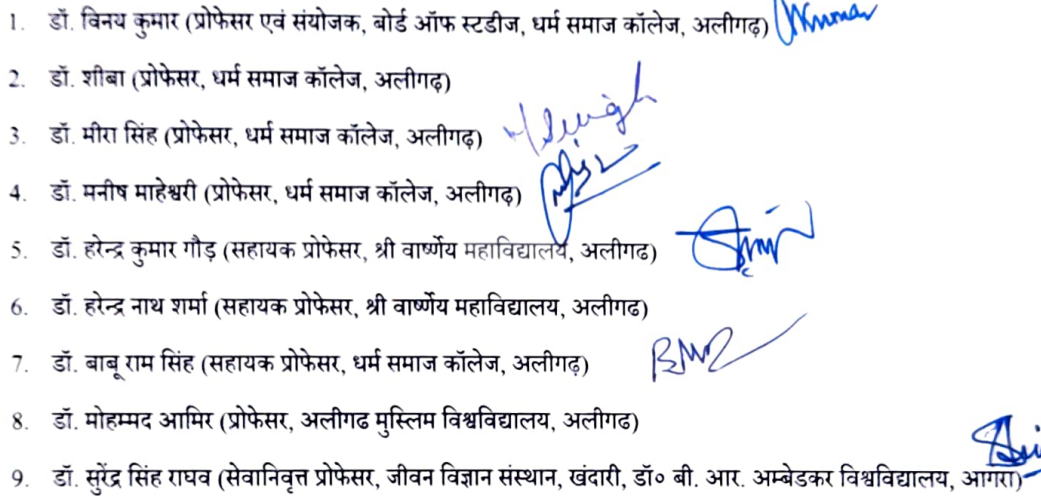 1. डॉ. विनय कुमार (प्रोफेसर एवं संयोजक, बोर्ड ऑफ स्टडीज, धर्म समाज कॉलेज, अलीगढ़)
2. डॉ. शीबा (प्रोफेसर, धर्म समाज कॉलेज, अलीगढ़)
3. डॉ. मीरा सिंह (प्रोफेसर, धर्म समाज कॉलेज, अलीगढ़)
4. डॉ. मनीष माहेश्वरी (प्रोफेसर, धर्म समाज कॉलेज, अलीगढ़)
5. डॉ. हरेन्द्र कुमार गौड़ (सहायक प्रोफेसर, श्री वार्ष्णेय महाविद्यालय, अलीगढ)
6. डॉ. हरेन्द्र नाथ शर्मा (सहायक प्रोफेसर, श्री वार्ष्णेय महाविद्यालय, अलीगढ)
7. डॉ. बाबू राम सिंह (सहायक प्रोफेसर, धर्म समाज कॉलेज, अलीगढ़)
8. डॉ. मोहम्मद आमिर (प्रोफेसर, अलीगढ मुस्लिम विश्वविद्यालय, अलीगढ)
9. डॉ. सुरेंद्र सिंह राघव (सेवानिवृत्त प्रोफेसर, जीवन विज्ञान संस्थान, खंदारी, डॉ० बी. आर. अम्बेडकर विश्वविद्यालय, आगरा)